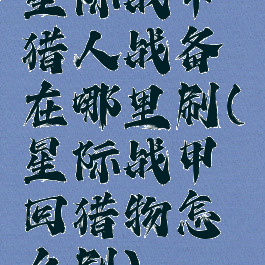 星际战甲
猎人战备
在哪里刷(
星际战甲
回猎物怎
么刷)